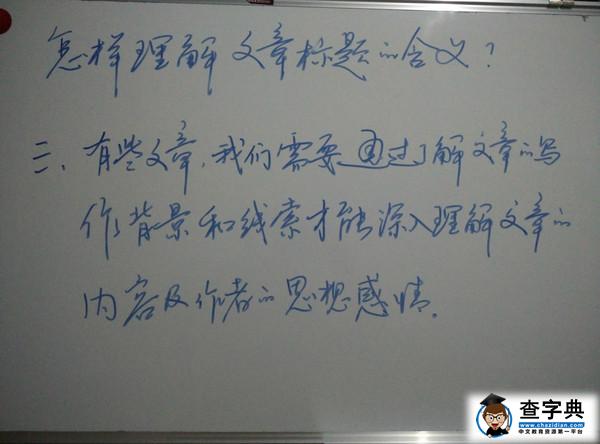 怎样理解文章标题的含义?
二、有些文章,我们需要通过了解文章的写
作背景和线索才能深入理解文章的
内容及作者的思想感情.
查字典
www.chazidian.com
中文教育资源第一平台